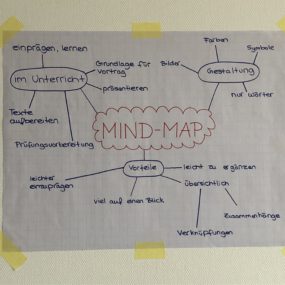 einprägen, lernen
im Unterricht
Grundlage für
Vortrag
präsentieren
Texte
aufbereiten
Prüfungsvorbereitung
Farben
Symbole
Bilder
Gestaltung
nur wörter
MIND-MAP
Vorteile
leichter
einzuprägen
viel auf einen Blick
leicht zu ergänzen
übersichtlich
Zusammenhänge
Verknüpfungen